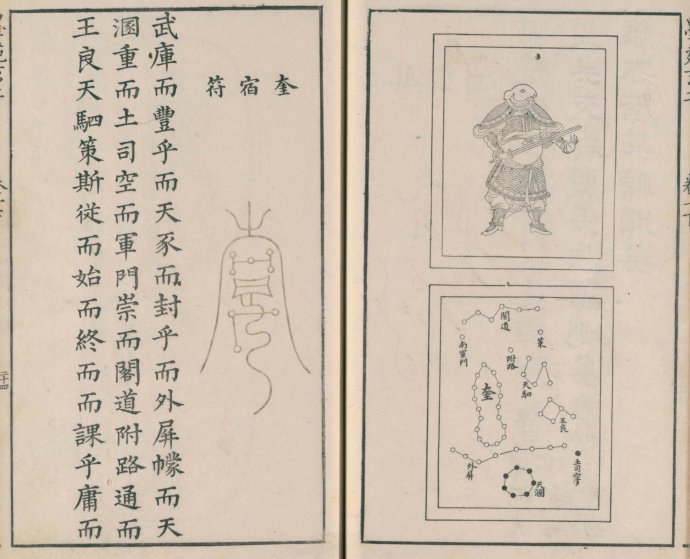 閣道
策
附路
南軍門
天駟
奎
王良
外屏
土司空
天溷
奎宿符
武庫而豐乎而天豕而封乎而外屏幪而天
溷重而土司空而軍門崇而閣道附路通而
王良天駟策斯從而始而終而而課乎庸而